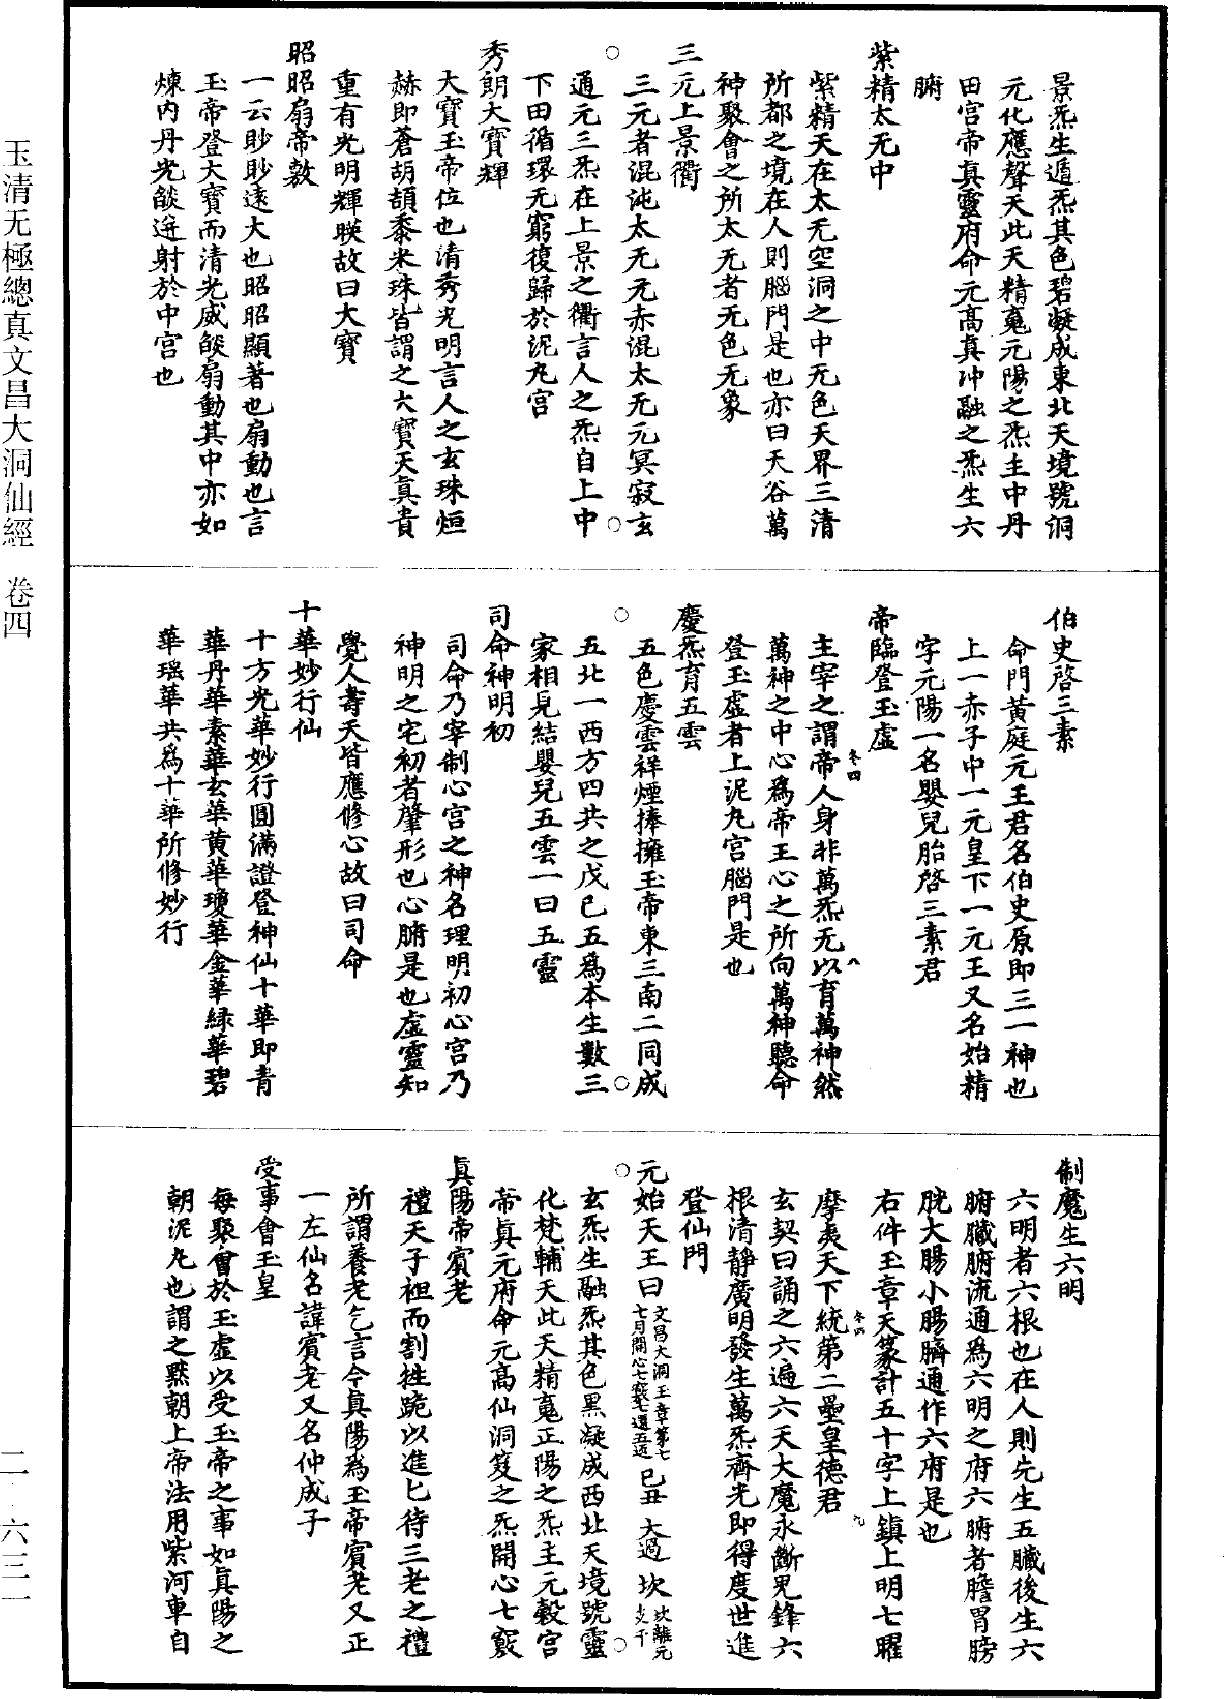 景炁生遁炁其色碧凝成東北天境號洞
元化應聲天此天精䰟元陽之炁主中丹
田宮帝真靈府命元高真沖融之炁生六
腑
紫精太无中
紫精天在太无空洞之中无色天界三清
所都之境在人則腦門是也亦曰天谷萬
神聚會之所太无者无色无象
三元上景衢
三元者混沌太无元赤混太无元冥寂玄
通元三炁在上景之衢言人之炁自上中
下田循環无窮復歸於泥丸宮
秀朗大寶輝
大寶玉帝位也清秀光明言人之玄珠烜
赫即蒼胡頡黍米珠皆謂之大寶天真貴
重有光明輝映故曰大寶
昭昭扇帝敷
一云眇眇遠大也昭昭顯著也扇動也言
玉帝登大寶而清光威餤扇動其中亦如
煉內丹光餤迸射於中宮也
伯史啓三素
命門黃庭元王君名伯史原即三一神也
上一赤子中一元皇下一元王又名始精
字元陽一名嬰兒胎啓三素君
帝臨登玉虛
主宰之謂帝人身非萬炁无以育萬神然
萬神之中心為帝王心之所向萬神聽命
登玉虛者上泥丸宮腦門是也
慶炁育五雲
五色慶雲祥煙捧擁玉帝東三南二同成
五北一西方四共之戊己五為本生數三
家相見結嬰兒五雲一曰五靈
司命神明初
司命乃宰制心宮之神名理明初心宮乃
神明之宅初者肇形也心腑是也虛靈知
覺人壽夭皆應修心故曰司命
十華妙行仙
十方光華妙行圓滿證登神仙十華即青
華丹華素華玄華黃華瓊華金華緑華碧
華瑶華共為十華所修妙行
制魔生六明
六明者六根也在人則先生五臟後生六
腑臟腑流通為六明之府六腑者膽胃膀
胱大腸小腸臍通作六府是也
右件玉章天篆計五十字上鎮上明七曜
摩夷天下統第二壘皇德君
玄契曰誦之六遍六天大魔永斷鬼鋒六
根清靜廣明發生萬炁齊光即得度世進
登仙門
元始天王曰 文昌大洞玉章第七 七月開心七竅七還五返 己丑 大過 坎 坎離元 支干
玄炁生融炁其色黑凝成西北天境號靈
化梵輔天此天精䰟正陽之炁主元穀宮
帝真元府命元高仙洞笈之炁開心七竅
真陽帝賓老
禮天子袒而割牲跪以進匕待三老之禮
所謂養老乞言今真陽為玉帝賓老又正
一左仙名諱賓老又名仲成子
受事會玉皇
每聚會於玉虛以受玉帝之事如真陽之
朝泥丸也謂之默朝上帝法用紫河車自
玉清无極總真文昌大洞仙經 卷四
二·六三一